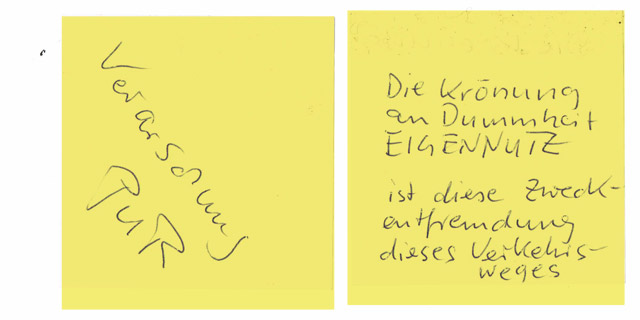 Verarschung
PUR
Die Krönung
an Dummheit
EIGENNUTZ
ist diese Zweck-
entfremdung
dieses Verkehrs-
weges